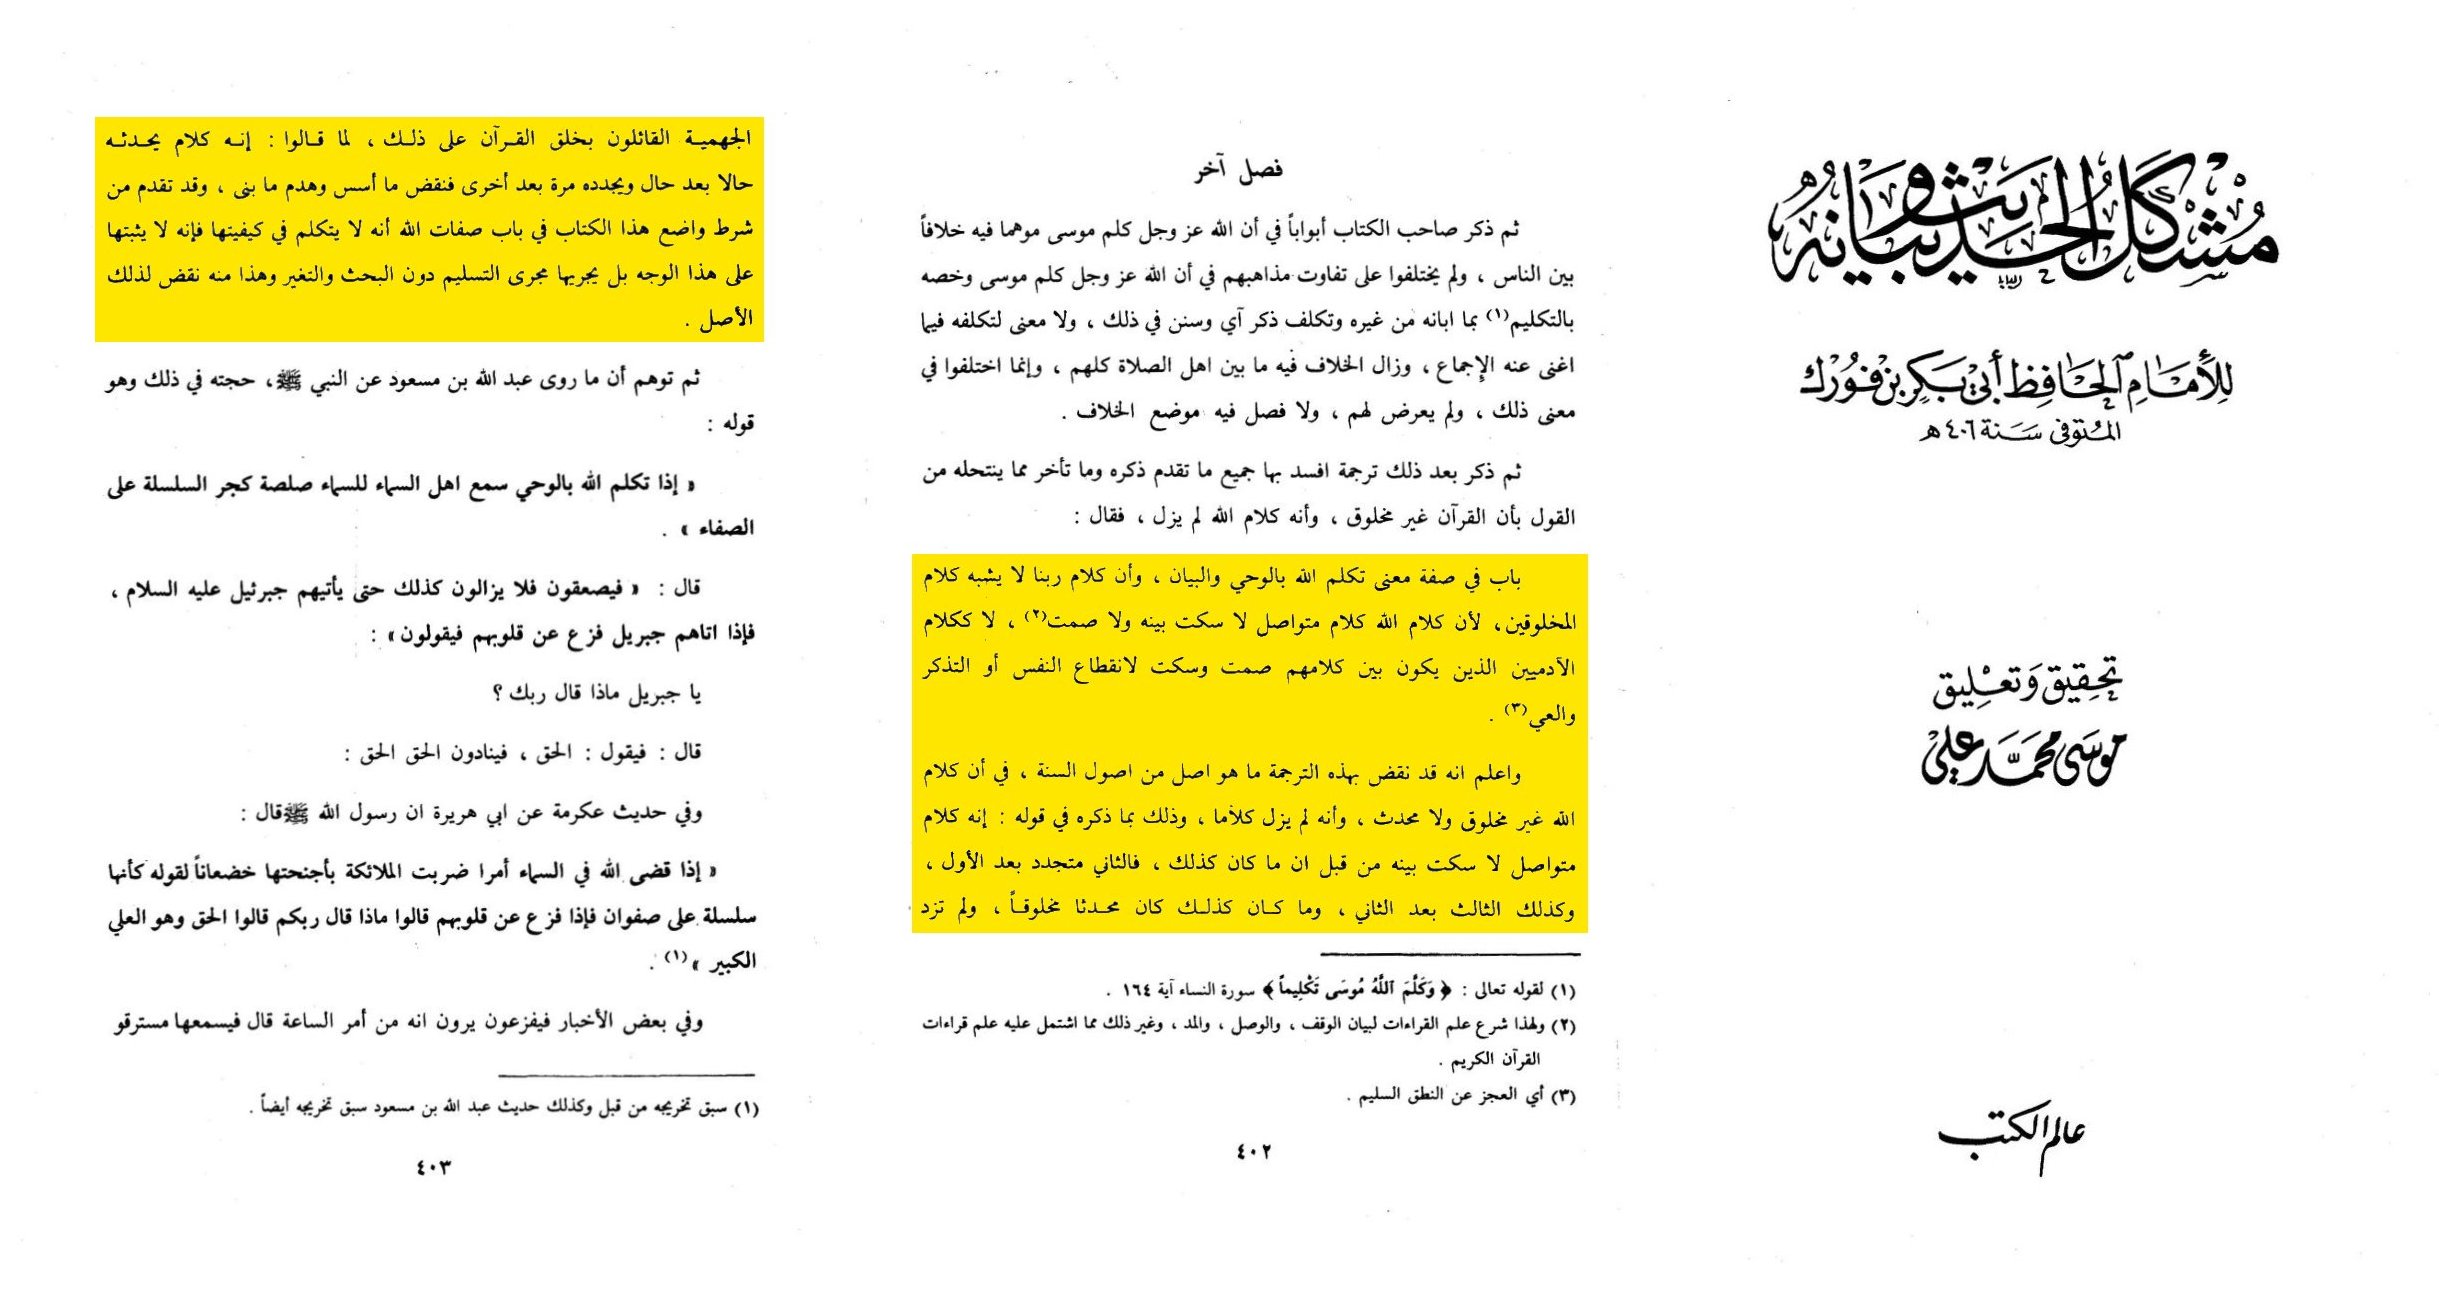 مشكل الحديث وبيانه
للإمام الحافظ أبي بكر بن فورك
المتوفى سنة ٤٠٦ هـ
تحقيق وتعليق
موسى محمد علي
عالم الكتب
فصل آخر
ثم ذكر صاحب الكتاب أبواباً في أن الله عز وجل كلم موسى موهما فيه خلافاً
بين الناس ، ولم يختلفوا على تفاوت مذاهبهم في أن الله عز وجل كلم موسى وخصه
بالتكليم(١) بما ابانه من غيره وتكلف ذكر آي وسنن في ذلك ، ولا معنى لتكلفه فيما
اغنى عنه الإجماع ، وزال الخلاف فيه ما بين اهل الصلاة كلهم ، وإنما اختلفوا في
معنى ذلك ، ولم يعرض لهم ، ولا فصل فيه موضع الخلاف .
ثم ذكر بعد ذلك ترجمة افسد بها جميع ما تقدم ذكره وما تأخر مما ينتحله من
القول بأن القرآن غير مخلوق ، وأنه كلام الله لم يزل ، فقال :
باب في صفة معنى تكلم الله بالوحي والبيان ، وأن كلام ربنا لا يشبه كلام
المخلوقين، لأن كلام الله كلام متواصل لا سكت بينه ولا صمت(٢) ، لا ككلام
الآدميين الذين يكون بين كلامهم صمت وسكت لانقطاع النفس أو التذكر
والعي(٣) .
واعلم انه قد نقض بهذه الترجمة ما هو اصل من اصول السنة ، في أن كلام
الله غير مخلوق ولا محدث ، وأنه لم يزل كلاما ، وذلك بما ذكره في قوله : إنه كلام
متواصل لا سكت بينه من قبل ان ما كان كذلك ، فالثاني متجدد بعد الأول ،
وكذلك الثالث بعد الثاني ، وما كان كذلك كان محدثا مخلوقاً ، ولم تزد
(١) لقوله تعالى : ﴿ وَكَلَّمَ ٱللَّهُ مُوسَى تَكْلِيماً ﴾ سورة النساء آية ١٦٤ .
(٢) ولهذا شرع علم القراءات لبيان الوقف ، والوصل ، والمد ، وغير ذلك مما اشتمل عليه علم قراءات
القرآن الكريم .
(٣) أي العجز عن النطق السليم .
٤٠٢
الجهمية القائلون بخلق القرآن على ذلك ، لما قالوا : إنه كلام يحدثه
حالا بعد حال ويجدده مرة بعد أخرى فنقض ما أسس وهدم ما بنى ، وقد تقدم من
شرط واضع هذا الكتاب في باب صفات الله أنه لا يتكلم في كيفيتها فإنه لا يثبتها
على هذا الوجه بل يجريها مجرى التسليم دون البحث والتغير وهذا منه نقض لذلك
الأصل .
ثم توهم أن ما روى عبد الله بن مسعود عن النبي ﷺ، حجته في ذلك وهو
قوله :
« إذا تكلم الله بالوحي سمع اهل السماء للسماء صلصة كجر السلسلة على
الصفاء » .
قال : « فيصعقون فلا يزالون كذلك حتى يأتيهم جبرئيل عليه السلام ،
فإذا اتاهم جبريل فزع عن قلوبهم فيقولون» :
يا جبريل ماذا قال ربك ؟
قال : فيقول : الحق ، فينادون الحق الحق :
وفي حديث عكرمة عن ابي هريرة ان رسول الله ﷺ قال :
« إذا قضى الله في السماء أمرا ضربت الملائكة بأجنحتها خضعاناً لقوله كأنها
سلسلة على صفوان فإذا فزع عن قلوبهم قالوا ماذا قال ربكم قالوا الحق وهو العلي
الكبير »(١) .
وفي بعض الأخبار فيفزعون يرون انه من أمر الساعة قال فيسمعها مسترقو
(١) سبق تخريجه من قبل وكذلك حديث عبد الله بن مسعود سبق تخريجه أيضاً .
٤٠٣